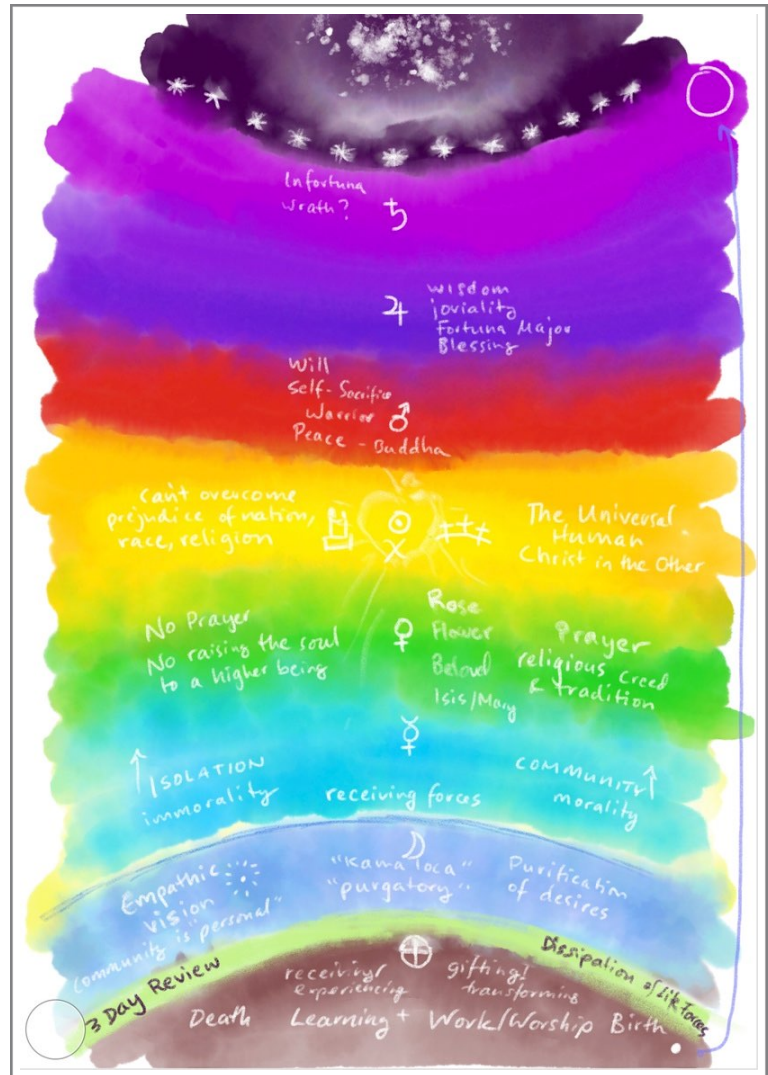 Infortuna
wrath?
♄
♃
wisdom
joviality
Fortuna Major
Blessing
Will
Self-Sacrifice
Warrior ♂
Peace - Buddha
Can't overcome
prejudice of nation,
race, religion
☉
The Universal
Human
Christ in the Other
No Prayer
No raising the soul
to a higher being
♀
Rose
Flower
Beloved
Isis/Mary
Prayer
religious creed
& tradition
☿
ISOLATION
immorality
receiving forces
COMMUNITY
morality
Empathic
vision
community is "personal"
☽
"Kamaloca"
"purgatory"
Purification
of desires
3 Day Review
Dissipation of Life Forces
receiving/
experiencing
gifting/
transforming
Death Learning + Work/Worship Birth